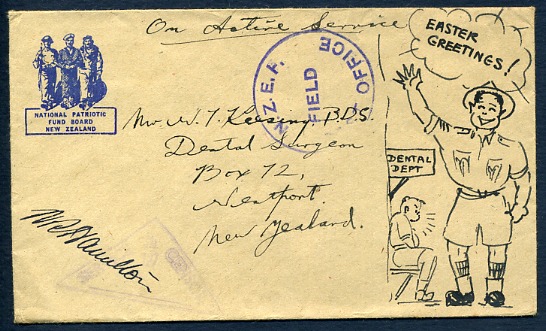 On Active Service
EASTER
GREETINGS!
NATIONAL PATRIOTIC
FUND BOARD
NEW ZEALAND
N.Z.E.F.
FIELD
OFFICE
Mr. W. T. Keesing B.D.S.
Dental Surgeon
Box 72,
Westport.
New Zealand.
DENTAL
DEPT
Hamilton